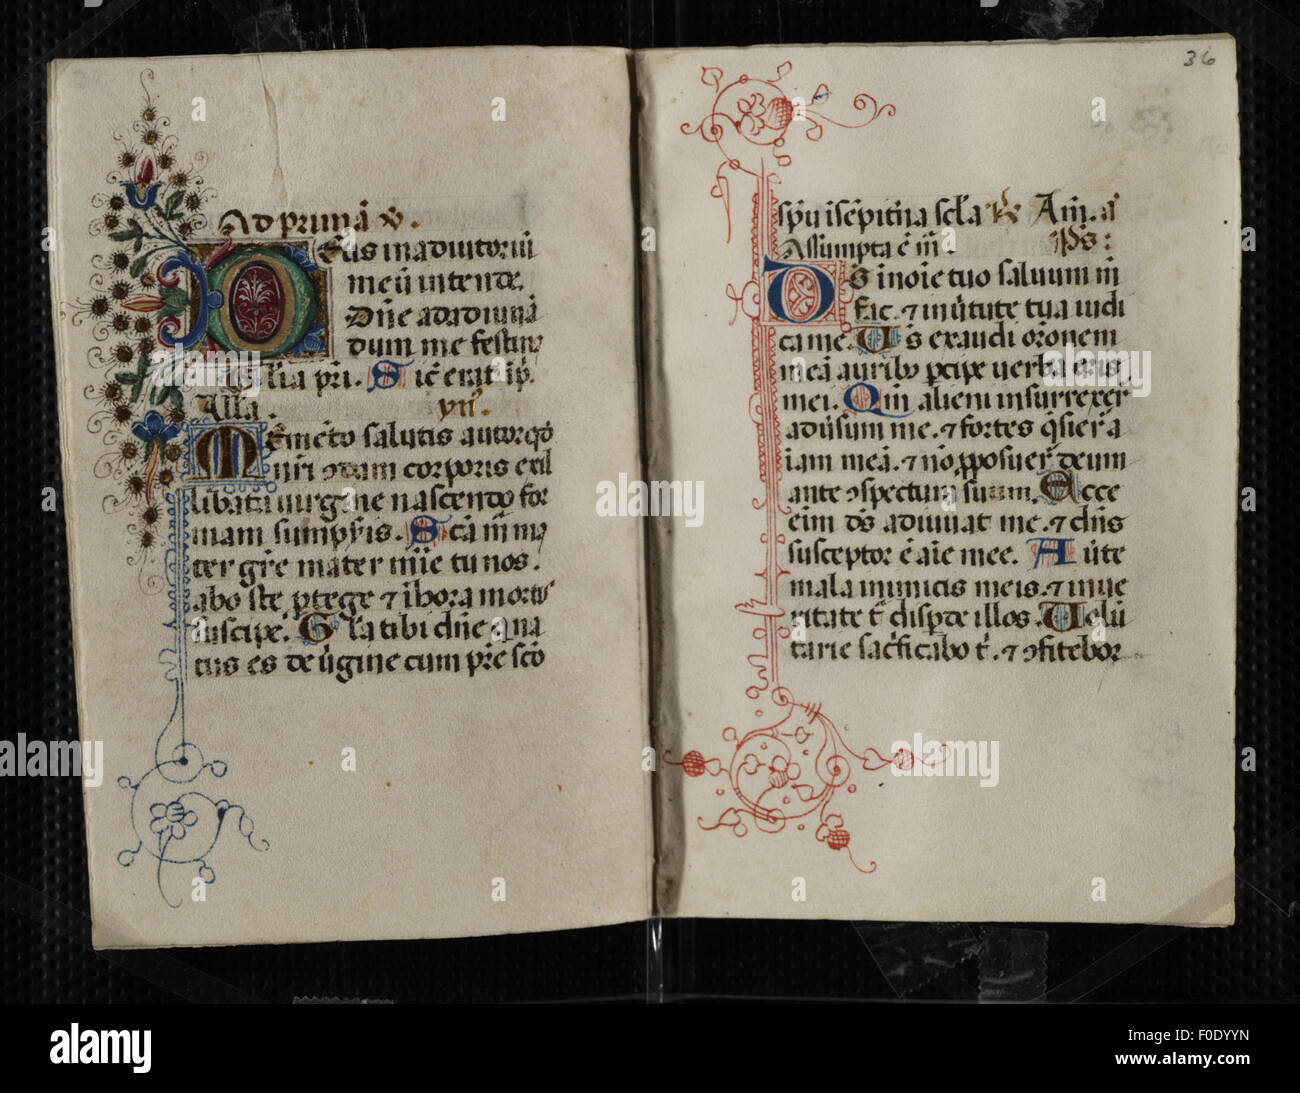 Ad primā ꝟ.
Eus in adiutoriū
meū intende.
Dn̄e ad adiuuā
dum me festin̄
G lia pr̄i. S ic̄ erat ip̄.
Alla. ym̄.
Memēto salutis autor qd̄
nr̄i ꝯdam corporis ex il
libata uirgine nascendo for
mam sumpsr̄is. S cā m̄ ma
ter gr̄e mater mīe tu nos.
ab oste ꝓtege ⁊ ī hora mortis
suscipe. G la tibi dn̄e qui na
tus es de ūgine cum pr̄e scō
36
spū ī sēpit̄na scl̄a Am̄. a̅
Assūmpta ē m̄ ꝑ̄s:
Ds̄ in oīe tuo saluum m̄
fac. ⁊ in ūtute tua iudi
ca me. Ds̄ exaudi or̄onem
meā auribꝰ ꝑcipe uerba oris
mei. Qm̄ alieni insurrexer̄
aduersum me. ⁊ fortes q̄sier̄ā
iam meā. ⁊ nō ꝓposuer̄ deum
ante ꝯspectum suum. Ecce
eīm ds̄ adiuuat me. ⁊ dn̄s
susceptor ē aīe mee. Auūte
mala inimicis meis. ⁊ in ue
ritate t̄ disꝑde illos. Uolū
tarie sac̄ficabo t̄. ⁊ ꝯfitebor
alamy
alamy stock photo
F0DYYN
www.alamy.com